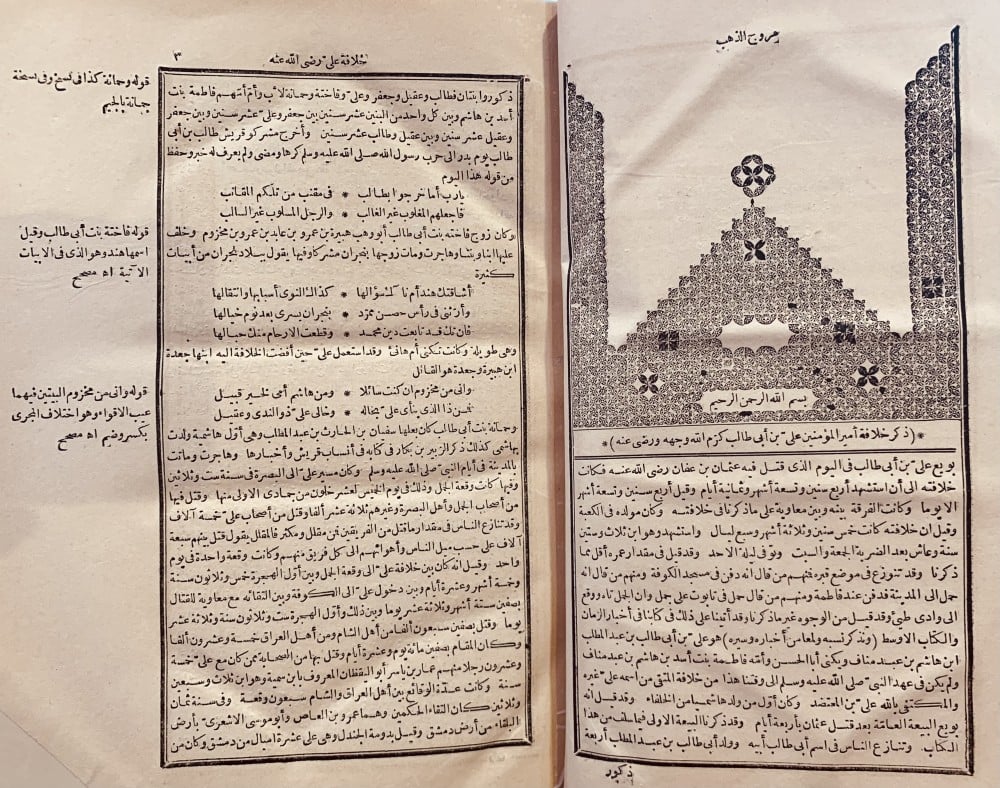 مروج الذهب
بسم الله الرحمن الرحيم
*(ذكر خلافة أمير المؤمنين على بن أبى طالب كرم الله وجهه ورضى عنه)*
بويع على بن أبى طالب فى اليوم الذى قتل فيه عثمان بن عفان رضى الله عنه فكانت
خلافته الى أن استشهد أربع سنين وتسعة أشهر وثمانية أيام وقيل أربع سنين وتسعة أشهر
الا يوما وكانت الفرقة بينه وبين معاوية على ما ذكرنا فى خلافته وكان مولده فى الكعبة
وقيل ان خلافته كانت خمس سنين وثلاثة أشهر وسبع ليال واستشهد وهو ابن ثلاث وستين
سنة وعاش بعد الضربة الجمعة والسبت وتوفى ليلة الاحد وقد قيل فى مقدار عمره أقل مما
ذكرنا وقد تنوزع فى موضع قبره فمنهم من قال انه دفن فى مسجد الكوفة ومنهم من قال انه
حمل الى المدينة فدفن عند فاطمة ومنهم من قال حمل فى تابوت على جمل وان الجمل تاه ووقع
الى وادى طيئ وقد قيل من الوجوه غير ما ذكرنا وقد أتينا على ذلك فى كتابنا فى أخبار الزمان
والكتاب الاوسط (ونذكر نسبه ولمعا من أخباره وسيره) هو على بن أبى طالب بن عبد المطلب
ابن هاشم بن عبد مناف ويكنى أبا الحسن وأمه فاطمة بنت أسد بن هاشم بن عبد مناف
ولم يكن فى عهد النبى صلى الله عليه وسلم الى وقتنا هذا من خلافة المتقى من اسمه على غيره
والمكتفى بالله على بن المعتضد وكان أول من ولده هاشميا من الخلفاء وقد قيل انه
بويع البيعة العامة بعد قتل عثمان بأربعة أيام وقد ذكرنا البيعة الاولى فيما سلف من هذا
الكتاب وتنازع الناس فى اسم أبى طالب أبيه وولد أبى طالب بن عبد المطلب أربعة
ذكور
خلافة على رضى الله عنه
٣
ذكور وابنتان فطالب وعقيل وجعفر وعلى وفاختة وجمانة لاب وأم أمهم فاطمة بنت
أسد بن هاشم وبين كل واحد من البنين عشر سنين بين جعفر وعلى عشر سنين وبين جعفر
وعقيل عشر سنين وبين عقيل وطالب عشر سنين وأخرج مشركو قريش طالب بن أبى
طالب يوم بدر الى حرب رسول الله صلى الله عليه وسلم كرها ومضى ولم يعرف له خبر وحفظ
من قوله هذا اليوم
يارب أما خرجوا بطالب * فى مقنب من تلكم المقانب
فاجعلهم المغلوب غير الغالب * والرجل المسلوب غير السالب
وكان زوج فاختة بنت أبى طالب أبو وهب هبيرة بن عمرو بن عايد بن عمرو بن مخزوم وخلف
عليها ابنا وبنتا وهاجرت ومات زوجها بنجران مشركا وفيها يقول ببلاد نجران من أبيات
كثيرة
أشاقتك هند أم ناك سؤالها * كذاك النوى أسبابها وانتقالها
وأرتنى فى رأس حصن ممرد * بنجران يسرى بعد نوم خيالها
فان تك قد تابعت دين محمد * وقطعت الارحام منك حبالها
وهى طويلة وكانت تكنى أم هانئ وقد استعمل على حين أفضت الخلافة اليه ابنها جعدة
ابن هبيرة وجعدة هو القائل
وانى من مخزوم ان كنت سائلا * ومن هاشم أمى لخير قبيل
فمن ذا الذى ينأى على بخاله * وخالى على ذو الندى وعقيل
وجمانة بنت أبى طالب كان بعلها سفيان بن الحارث بن عبد المطلب وهى أول هاشمية ولدت
بهاشمى كذلك ذكر الزبير بن بكار فى كتابه فى أنساب قريش وأخبارها وهاجرت وماتت
بالمدينة فى أيام النبى صلى الله عليه وسلم وكان مسير على الى البصرة فى سنة ست وثلاثين
وفيها كانت وقعة الجمل وذلك فى يوم الخميس لعشر خلون من جمادى الاولى منها وقتل فيها
من أصحاب الجمل وأهل البصرة وغيرهم ثلاثة عشر ألفا وقتل من أصحاب على خمسة آلاف
وقد تنازع الناس فى مقدار ما قتل من الفريقين فمن مقلل ومكثر فالمقلل يقول قتل بينهم سبعة
آلاف على حسب ميل الناس وأهوائهم الى كل فريق منهم وكانت وقعة واحدة فى يوم
واحد وقيل انه كان بين خلافة على الى وقعة الجمل وبين أول الهجرة خمس وثلاثون سنة
وخمسة أشهر وعشرة أيام وبين دخول على الى الكوفة وبين التقائه مع معاوية للقتال
بصفين ستة أشهر وثلاثة عشر يوما وبين ذلك وأول الهجرة ست وثلاثون سنة وثلاثة عشر
يوما وقتل بصفين سبعون ألفا من أهل الشام ومن أهل العراق خمسة وعشرون ألفا
وكان المقام بصفين مائة يوم وعشرة أيام وقتل بها من الصحابة ممن كان مع على خمسة
وعشرون رجلا منهم عمار بن ياسر أبو اليقظان المعروف بابن سمية وهو ابن ثلاث وسبعين
سنة وكانت عدة الوقائع بين أهل العراق والشام سبعون وقعة وفى سنة ثمان
وثلاثين كان التقاء الحكمين وهما عمرو بن العاص وأبو موسى الاشعرى بأرض
البلقاء من أرض دمشق وقيل بدومة الجندل وهى على عشرة أميال من دمشق وكان من
قوله وجمانة كذا فى نسخ وفى نسخة
جمانة بالجيم
قوله فاختة بنت أبى طالب وقيل
اسمها هند وهو الذى فى الابيات
الآتية اه مصحح
قوله وانى من مخزوم البيتين فيهما
عيب الاقواء وهو اختلاف المجرى
بكسر وضم اه مصحح